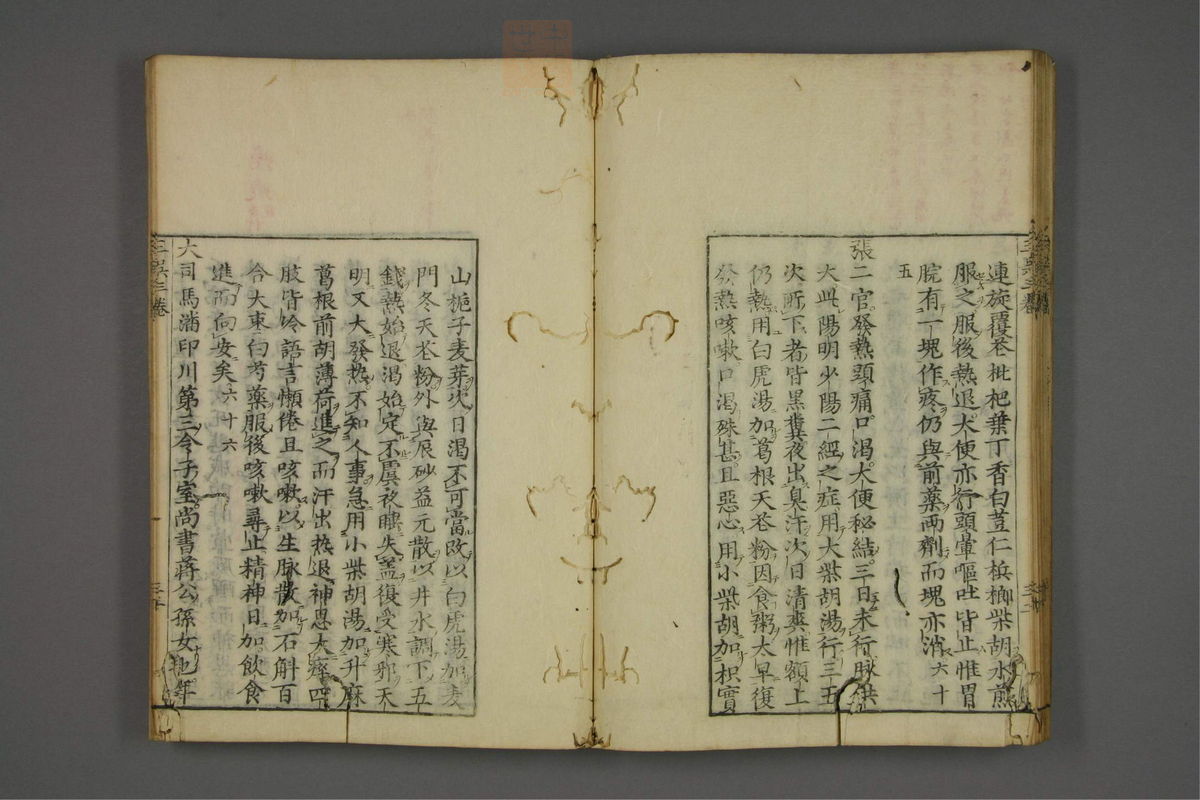 連旋覆花枇杷葉丁香白荳仁梹榔柴胡水煎
服之服後熱退大便亦行頭暈嘔吐皆止惟胃
脘有一塊作疼仍與前藥兩劑而塊亦消六十
五
張二官發熱頭痛口渴大便秘結三日未行脉洪
大此陽明少陽二經之症用大柴胡湯行三五
次所下者皆黑糞夜出臭汗次日清爽惟額上
仍熱用白虎湯加葛根天花粉因食粥太早復
發熱咳嗽口渴殊甚且惡心用小柴胡加枳實
山梔子麦芽次日渴不可當改以白虎湯加麦
門冬天花粉外與辰砂益元散以井水調下五
錢熱始退渴始定不虞夜睡失蓋復受寒邪天
明又大發热不知人事急用小柴胡湯加升麻
葛根前胡薄荷進之而汗出热退神思大瘁四
肢皆冷語言懶倦且咳嗽以生脉散加石斛百
合大棗白芍藥服後咳嗽尋止精神日加飲食
進而向安矣六十六
大司馬潘印川第三令子室尚書蔣公孫女也年